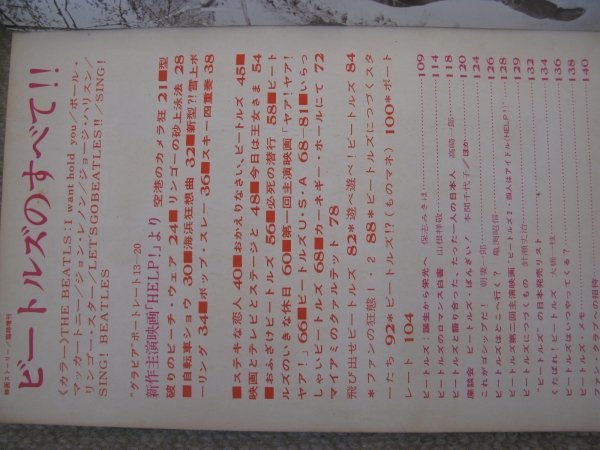 映画ストーリー/臨時増刊
ビートルズのすべて!!
〈カラー〉THE BEATLS:I want hold you/ポール・
マッカートニー/ジョン・レノン/ジョージ・ハリスン/
リンゴー・スター/LETSGOBEATLES!!/SING!
SING! BEATLES
"グラビア"ポートレート13—20
新作主演映画「HELP!」より 空港のカメラ狂 21■型
破りのビーチ・ウェア 24■リンゴーの砂上泳法 28
■自転車ショウ 30■海浜狂想曲 32■新型?!雪上ボ
ーリング 34■ボップ・スレー・36■スキー四重奏 38
■ステキな恋人 40■おかえりなさい、ビートルズ 45■
映画とテレビとステージと 48■今日は王女さま 54
■おふざけビートルズ 56■必死の潜行 58■ビート
ルズのいきな休日 60■第一回主演映画「ヤァ!ヤァ!
ヤァ!」66■ビートルズU・S・A 68—81■いらっ
しゃいビートルズ 68■カーネギー・ホールにて 72
マイアミのクァルテット 78
飛び出せビートルズ 82*遊べ遊べ!ビートルズ 84
*ファンの狂態 1・2 88*ビートルズにつづくスタ
ーたち 92*ビートルズ!?(ものマネ) 100*ポート
レート 104
ビートルズ:誕生から栄光へ 保志みさほ 109
ビートルズのロマンス白書 山根祥敬 114
ビートルズと語りあった、たった一人の日本人 高崎一郎 118
座談会 ビートルズ・ばんざい! 本間千代子/ほか 120
これがゴシップだ! 朝妻一郎 124
ビートルズはどこへ行く? 亀渕昭信 126
ビートルズ第二回主演映画"ビートルズ4人はアイドル(HELP!)" 128
ビートルズにつづくもの 針瀬丈治 129
"ビートルズ"の日本発売リスト 132
くたばれ!ビートルズ 大橋 134
ビートルズはいつやってくる? 136
ビートルズ・メモ 138
ファン・クラブへの招待 140